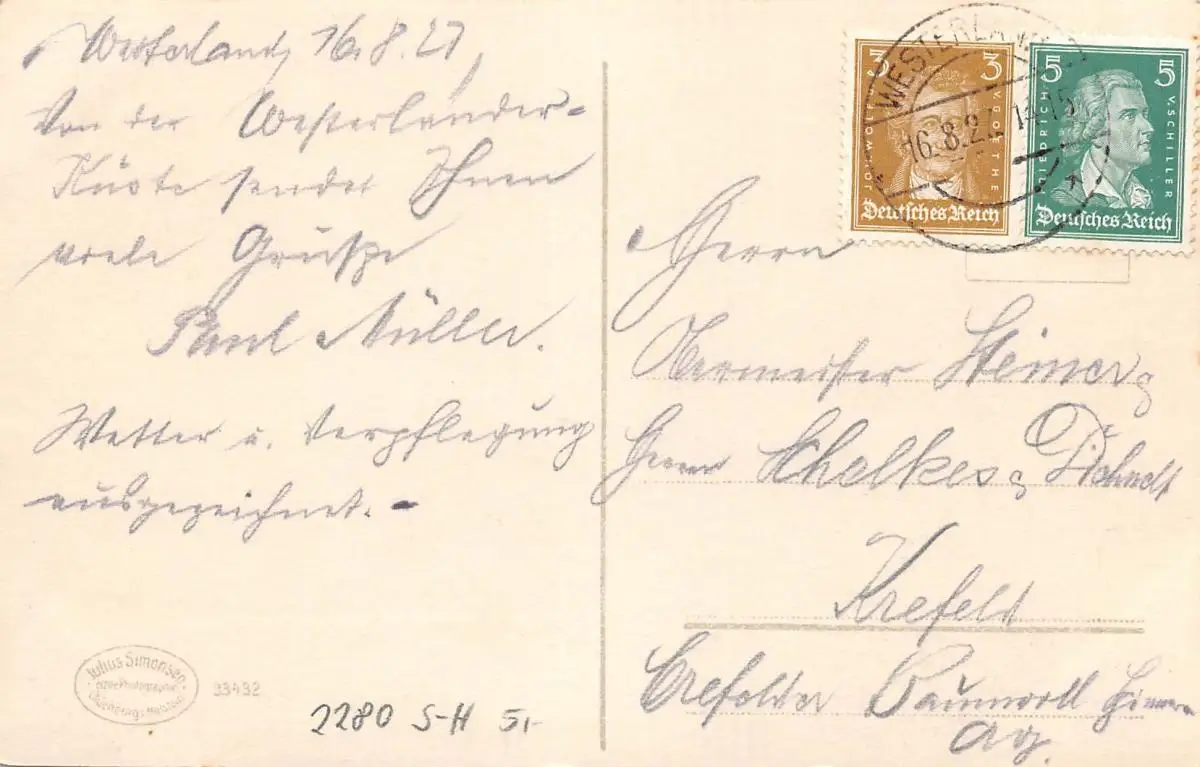 Westerland, 16.8.27,
Von der Westerländer-
Küste sendet Ihnen
viele Grüße
Paul Müller.
Wetter u. Verpflegung
ausgezeichnet. -
Julius Simonsen
33432
2280 S-H 5,-
WESTERLAND
16.8.27. 14-15
3 3
JOH. WOLFG. V GOETHE
Deutsches Reich
5 5
FRIEDRICH V SCHILLER
Deutsches Reich
Herrn
Obermeister
Herrn Schelkes
Krefeld
Crefelder Baumwoll
AG.